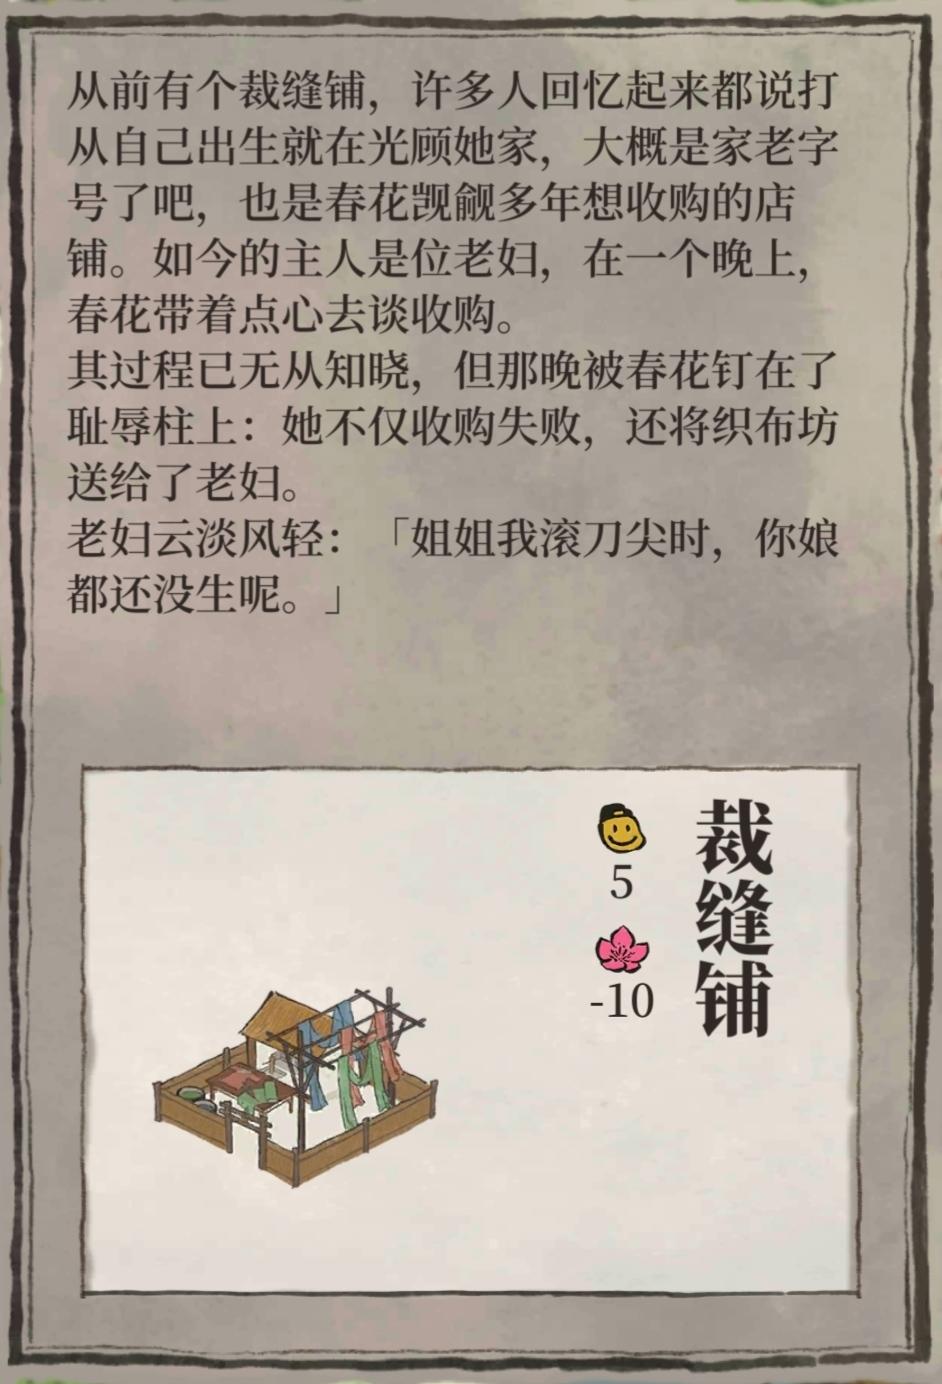 从前有个裁缝铺，许多人回忆起来都说打
从自己出生就在光顾她家，大概是家老字
号了吧，也是春花觊觎多年想收购的店
铺。如今的主人是位老妇，在一个晚上，
春花带着点心去谈收购。
其过程已无从知晓，但那晚被春花钉在了
耻辱柱上：她不仅收购失败，还将织布坊
送给了老妇。
老妇云淡风轻：「姐姐我滚刀尖时，你娘
都还没生呢。」
裁缝铺
5
-10